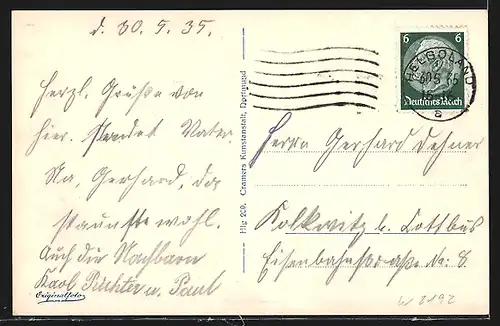 d. 30.5.35.
Herzl. Grüße von
hier sendet Vater.
Na, Gerhard, da
staunste wohl.
Auch die Nachbarn
Karl Richter u. Paul
Originalfoto
Hlg 209. Cramers Kunstanstalt, Dortmund
6 6
Deutsches Reich
HELGOLAND
a
Herrn Gerhard Dehner
Kolkwitz b. Cottbus
Eisenbahnstraße Nr. 8
W 2192